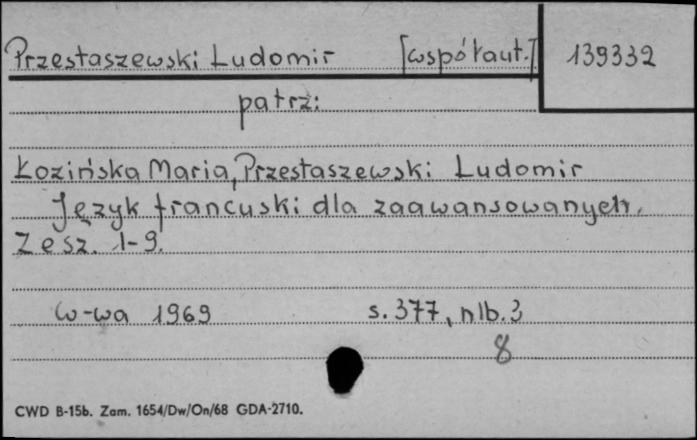 Przestaszewski Ludomir [współaut.] 139332
patrz:
Łozińska Maria, Przestaszewski Ludomir
Język francuski dla zaawansowanych.
Zesz. 1-9.
W-wa 1969 s. 377, nlb. 3
8
CWD B-15b. Zam. 1654/Dw/On/68 GDA-2710.